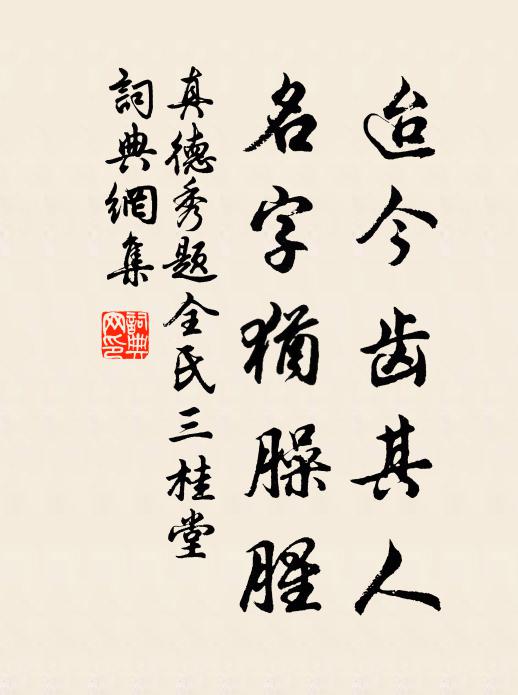 迨今齿其人
名字犹臊腥
真德秀题全氏三桂堂
词典网集
词典网印